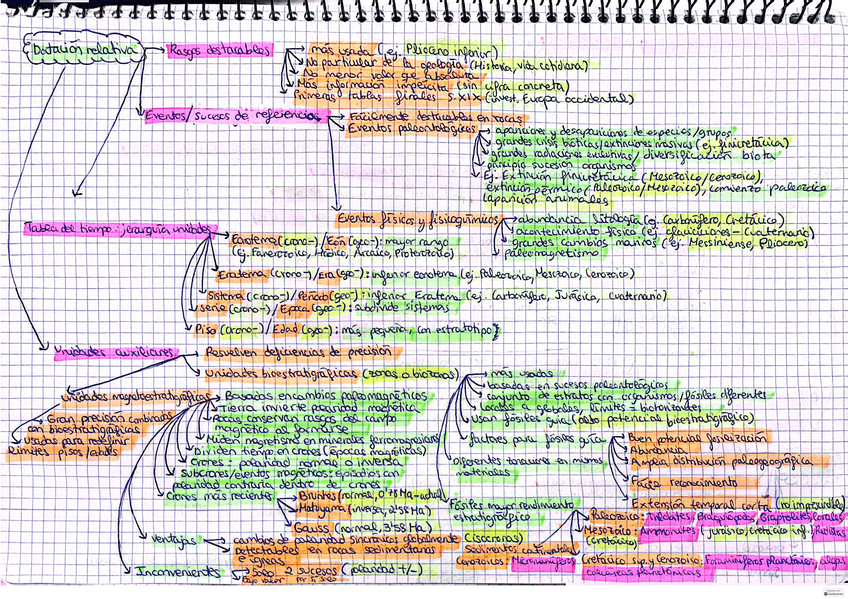 Datación relativa
Rasgos destacables
más usada (ej. Plioceno inferior)
No particular de la geología (Historia, vida cotidiana)
No menor valor que absoluta
Más información implícita (sin cifra concreta)
Primeras tablas finales S.XIX (invest. Europa occidental)
Eventos/sucesos de referencias
Fácilmente destacables en rocas
Eventos paleontológicos
apariciones y desapariciones de especies/grupos
grandes crisis bióticas/extinciones masivas (ej. finicretácica)
grandes radiaciones evolutivas/diversificación biota
principio sucesión organismos
Ej. Extinción finicretácica (Mesozoico/Cenozoico),
extinción pérmico (Paleozoico/Mesozoico), comienzo paleozoico
(aparición animales)
Eventos físicos y fisicoquímicos
abundancia litología (ej. Carbonífero, Cretácico)
acontecimiento físico (ej. glaciaciones - cuaternario)
grandes cambios marinos (ej. Messiniense, Plioceno)
paleomagnetismo
Tabla del tiempo: jerarquía, unidades
Eonotema (crono-)/Eón (geo-): mayor rango
(ej. Fanerozoico, Hádico, Arcaico, Proterozoico)
Eratema (crono-)/Era (geo-): inferior eonotema (ej. Paleozoico, Mesozoico, Cenozoico)
Sistema (crono-)/Período (geo-): inferior Eratema (ej. Carbonífero, Jurásico, cuaternario)
serie (crono-)/Época (geo-): subdivide sistemas
Piso (crono-)/Edad (geo-): más pequeña, con estratotipo
Unidades auxiliares
Resuelven deficiencias de precisión
Unidades bioestratigráficas (zonas o biozonas)
más usadas
basadas en sucesos paleontológicos
conjunto de estratos con organismos/fósiles diferentes
locales a globales, límites = biohorizontes
Usan fósiles guía (alto potencial bioestratigráfico)
factores para fósiles guía
Buen potencial fosilización
Abundancia
Amplia distribución paleogeográfica
Fácil reconocimiento
Extensión temporal corta (no imprescindible)
Diferentes
en mismos
materiales
Fósiles mayor rendimiento
estratigráfico
Paleozoico: Trilobites, Braquiópodos, Graptolites, Corales
Mesozoico: Ammonites (jurásico, cretácico inf.) Rudistas
(Cretácico)
Sedimentos continentales
Cenozoicos: Micromamíferos
Cretácico sup. y Cenozoico: Foraminíferos planctónicos, algas
calcáreas planctónicas
Unidades magnetoestratigráficas
Gran precisión combinadas
con bioestratigráficas
usadas para redefinir
límites pisos/edades
Basados en cambios paleomagnéticos
Tierra invierte polaridad magnética
rocas conservan rasgos del campo
magnético al formarse
Miden magnetismo en minerales ferromagnesianos
Dividen tiempo en crones (épocas magnéticas)
Crones: polaridad normal o inversa
Subcrones/eventos magnéticos: episodios
polaridad contraria dentro de crones
Crones más recientes
Brunhes (normal, 0'78 Ma-actual)
Matuyama (inversa, 2'58 Ma)
Gauss (normal, 3'58 Ma)
Ventajas
cambios de polaridad sincrónicos globalmente (isócronas)
detectables en rocas sedimentarias
e ígneas
Inconvenientes
Solo 2 sucesos (polaridad +/-)